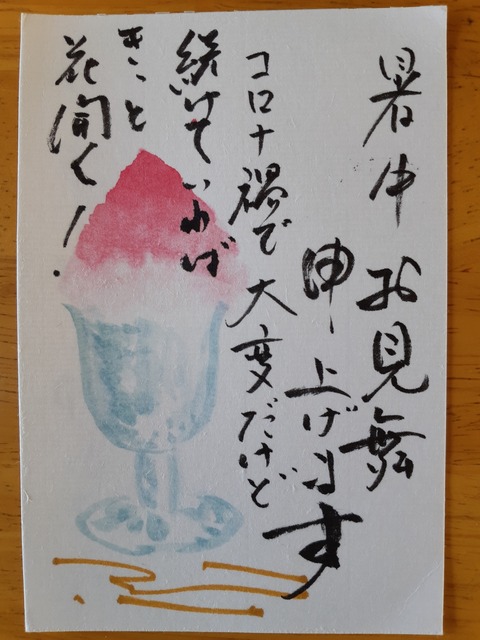 暑中お見舞
申上げます
コロナ禍で大変だけど
続けていれば
きっと
花開く!